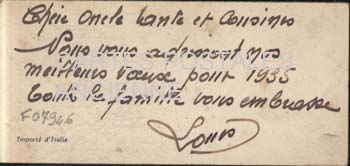 Chère Oncle tante et Cousines
Nous vous adressont nos
meilleurs vœux pour 1935
Toute la famille vous embrasse
Louis
F07946
Importé d'Italie